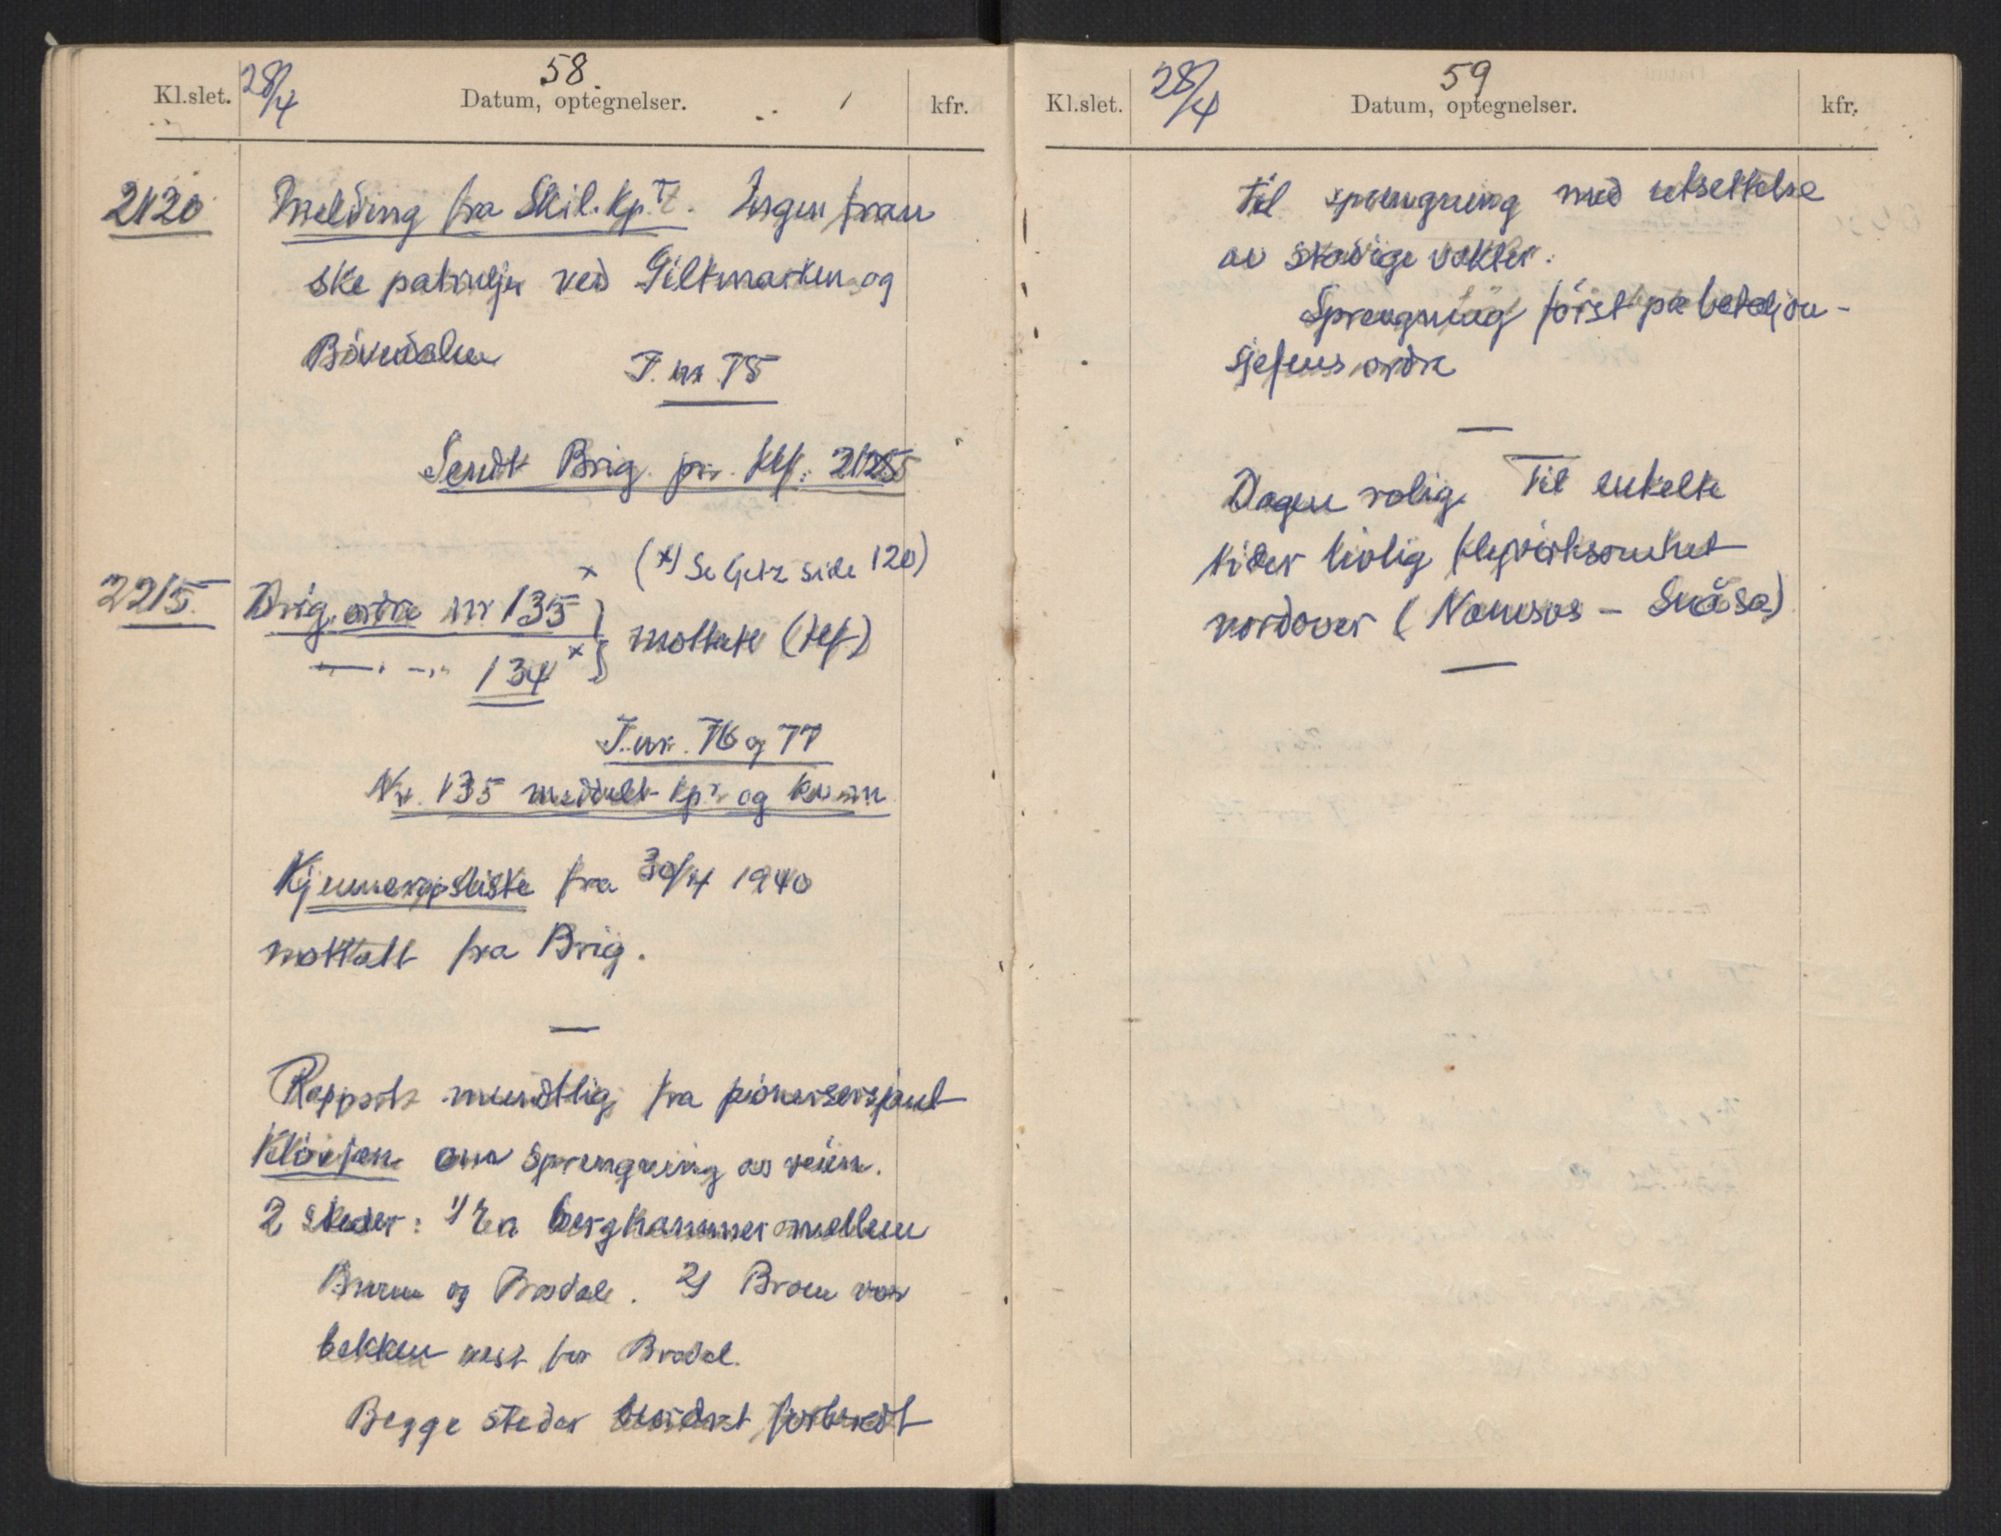 58
Kl.slet. 28/4 Datum, optegnelser. kfr.
2120 Melding fra Skil. Kpt. Ingen fran
ske patruljer ved Giltmarken og
J. nr 75
Sendt Brig. pr. tlf. 2125
(x) Se Getz side 120)
2215. Brig. ordre nr 135 x } mottatt (tlf)
134 x }
J. nr. 76 og 77
Nr. 135 meddelt kpr og komm
Kjenneropsliste fra 30/4 1940
mottatt fra Brig.
—
Rapport mundtlig fra pionersersjant
om sprengning av veien.
2 steder: 1) En berghammer mellem
og Brodal. 2) Broen over
bekken vest for Brodal.
Begge steder forberedt
59
Kl.slet. 28/4 Datum, optegnelser. kfr.
til sprengning med utsettelse
av stadige vakter.
Sprengning först på bataljon-
sjefens ordre
—
Dagen rolig. Til enkelte
tider livlig flyvirksomhet
nordover (Namsos – Snåsa)
—